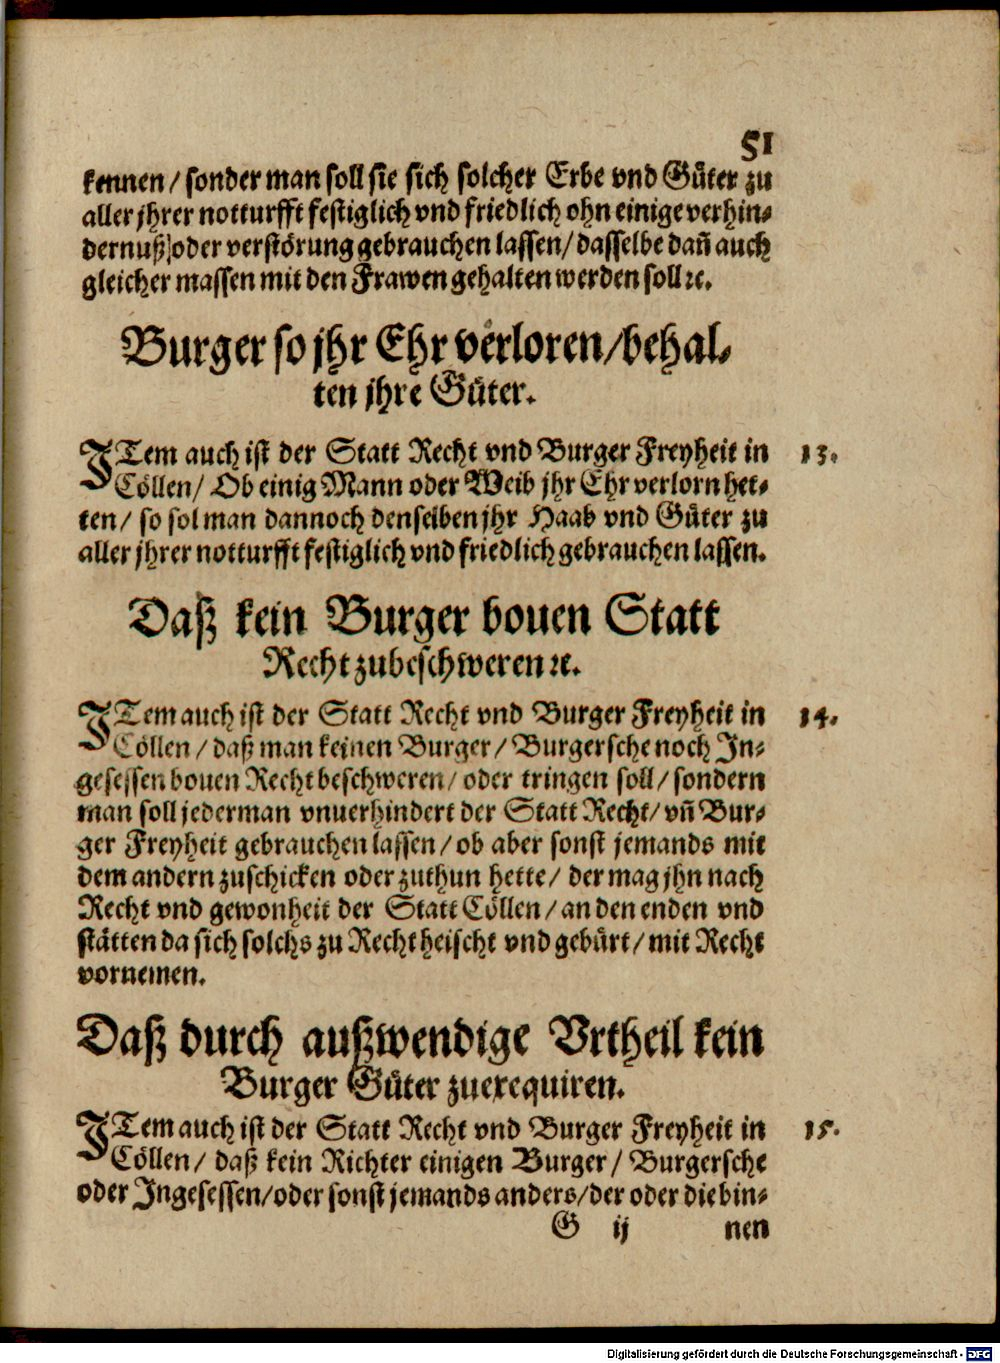 51
kennen / sonder man soll sie sich solcher Erbe vnd Gůter zu
aller jhrer notturfft festiglich vnd friedlich ohn einige verhin-
dernuß / oder verstörung gebrauchen lassen / dasselbe dañ auch
gleicher massen mit den Frawen gehalten werden soll ꝛc.
Burger so jhr Ehr verloren / behal-
ten jhre Gůter.
ITem auch ist der Statt Recht vnd Burger Freyheit in 13.
Cöllen / Ob einig Mann oder Weib jhr Ehr verlorn het-
ten / so sol man dannoch denselben jhr Haab vnd Gůter zu
aller jhrer notturfft festiglich vnd friedlich gebrauchen lassen.
Daß kein Burger bouen Statt
Recht zubeschweren ꝛc.
ITem auch ist der Statt Recht vnd Burger Freyheit in 14.
Cöllen / daß man keinen Burger / Burgersche noch In-
gesessen bouen Recht beschweren / oder tringen soll / sondern
man soll jederman vnuerhindert der Statt Recht / vñ Bur-
ger Freyheit gebrauchen lassen / ob aber sonst jemands mit
dem andern zuschicken oder zuthun hette / der mag jhn nach
Recht vnd gewonheit der Statt Cöllen / an den enden vnd
stätten da sich solchs zu Recht heischt vnd gebürt / mit Recht
vornemen.
Daß durch außwendige Vrtheil kein
Burger Gůter zuexequiren.
ITem auch ist der Statt Recht vnd Burger Freyheit in 15.
Cöllen / daß kein Richter einigen Burger / Burgersche
oder Ingesessen / oder sonst jemands anders / der oder die bin-
G ij nen
Digitalisierung gefördert durch die Deutsche Forschungsgemeinschaft - DFG